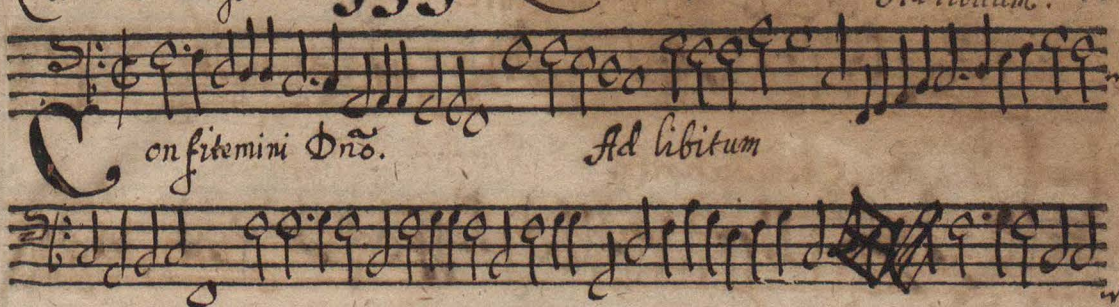 Confitemini Dño.
Ad libitum